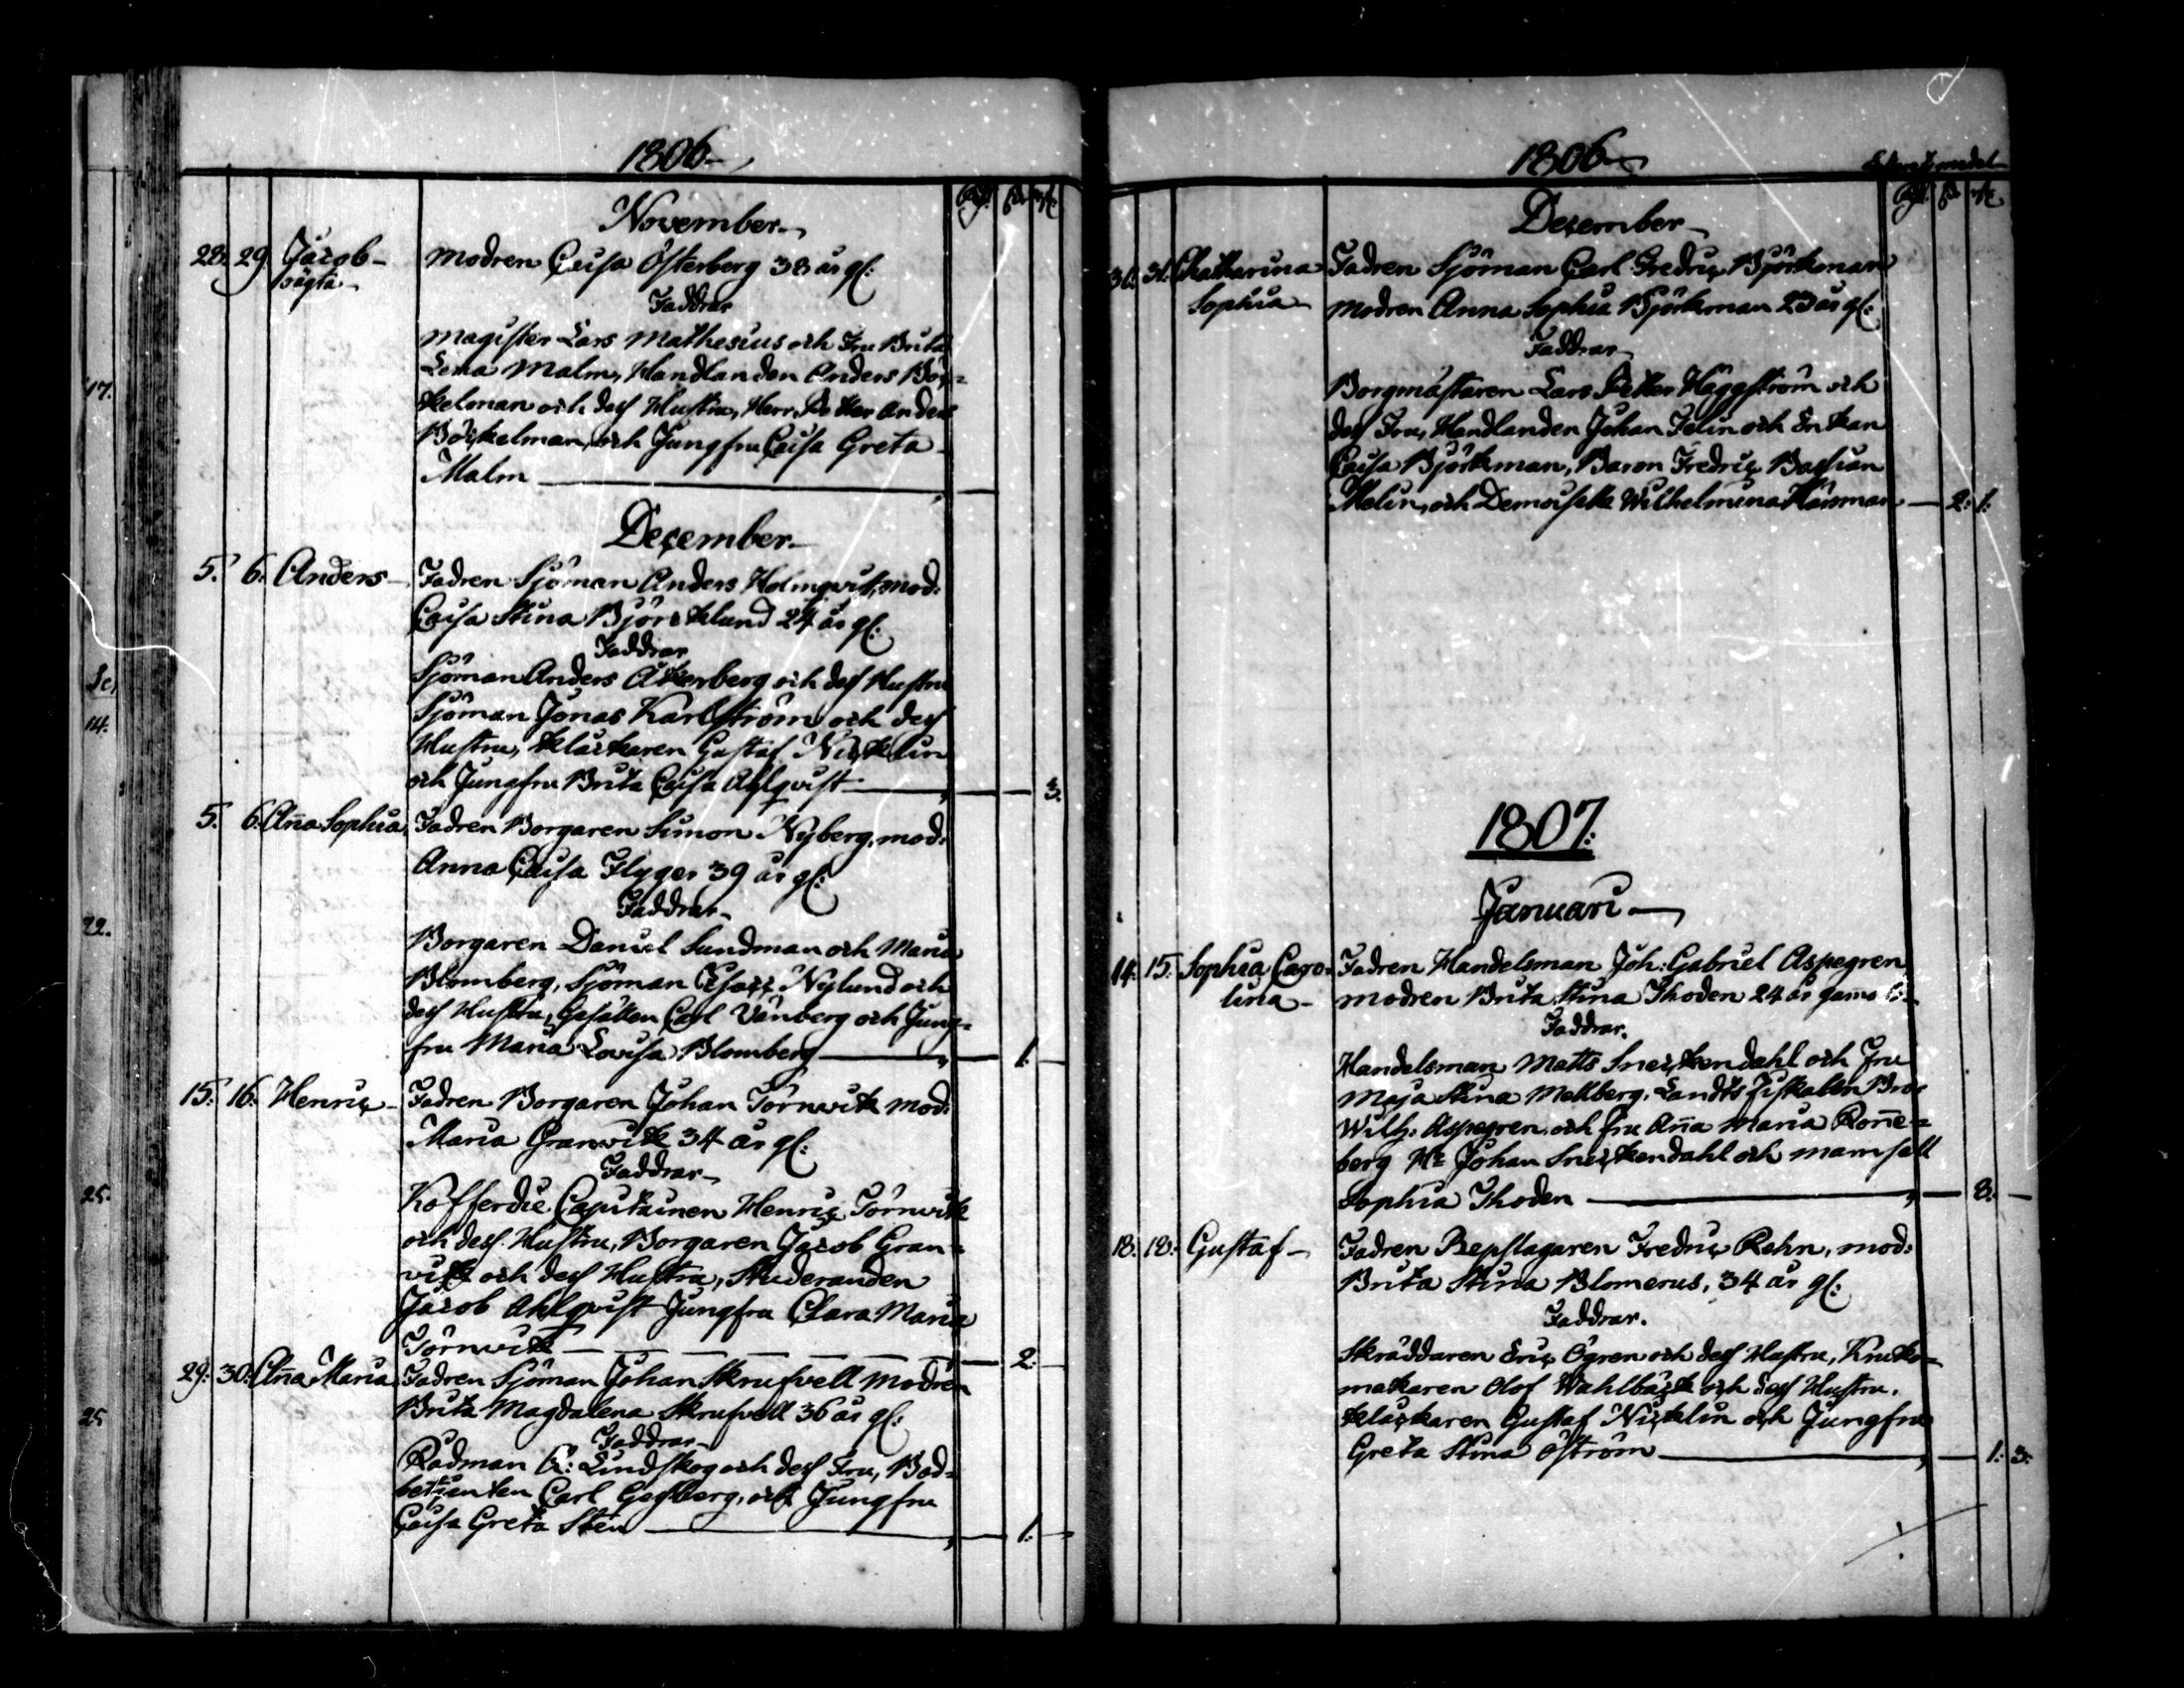 1806
November
28. 29. Jacob oägta Modren Caisa Österberg 38 år gl:
Faddrar
Magister Lars Mathesius och Fru Brita
Lena Malm, Handlanden Anders Böc=
kelman och dess Hustru, Herr Petter Anders
Böckelman, och Jungfru Caisa Greta
Malm
December
5. 6. Anders Fadren Sjöman Anders Holmqvist, mod:
Caisa Stina Björcklund 24 år gl:
Faddrar
Sjöman Anders Åkerberg och dess Hustru
Sjöman Jonas Karlström och dess
Hustru, klåckaren Gustaf Nicklin
och Jungfru Brita Caisa Ahlqvist 3.
5. 6. Anna Sophia Fadren Borgaren Simon Nyberg, mod:
Anna Caisa Flyger 39 år gl:
Faddrar
Borgaren Daniel Sundman och Maria
Blomberg, Sjöman Isacc Nylund och
dess Hustru, Gesällen Carl Vänberg och Jung=
fru Maria Lovisa Blomberg 1.
15. 16. Henric Fadren Borgaren Johan Törnwik mod:
Maria Granvik 34 år gl:
Faddrar
Kofferdie Capitainen Henric Törnwik
och dess Hustru, Borgaren Jacob Gran=
vik och dess Hustru, Studeranden
Jacob Ahlqvist Jungfru Clara Maria
Törnwik 2.
29: 30: Anna Maria Fadren Sjöman Johan Skrufvell Modren
Brita Magdalena Skrufvell 36 år gl:
Faddrar
Rådman C: Lindskog och dess Fru, Bod=
betjenten Carl Gessberg, och Jungfru
Caisa Greta Sten 1.
17.
14.
22.
25.
25
1806
December
30. 31. Chatharina Fadren Sjöman Carl Fredric Björkman
Sophia Modren Anna Sophia Björkman 23 år gl:
Faddrar
Borgmästaren Lars Petter Häggström och
dess Fru, Handlanden Johan Felin och Enkan
Caisa Björkman, Baron Fredric Bastian
Melin, och Demoiselle Wilhelmina 2: 1:
1807:
Januari
14. 15. Sophia Caro= Fadren Handelsman Joh: Gabriel Aspegren
lina Modren Brita Stina Thoden 24 år gammal
Faddrar.
Handelsman Matts Sneckendahl och Fru
Maja Stina Mellberg, Landts Fiskalen Bror
Wilh: Aspegren, och fru Anna Maria Ronne=
berg Hr Johan Sneckendahl och mamsell
Sophia Thoden 8.
18: 18: Gustaf Fadren Repslagaren Fredric Rehn, mod:
Brita Stina Blomerus, 34 år gl:
Faddrar.
Skräddaren Eric Ögren och dess Hustru, Kruko=
makaren Olof Wahlbäck och dess Hustru.
klåckaren Gustaf Nicklin och Jungfru
Greta Stina Öström 1: 3: